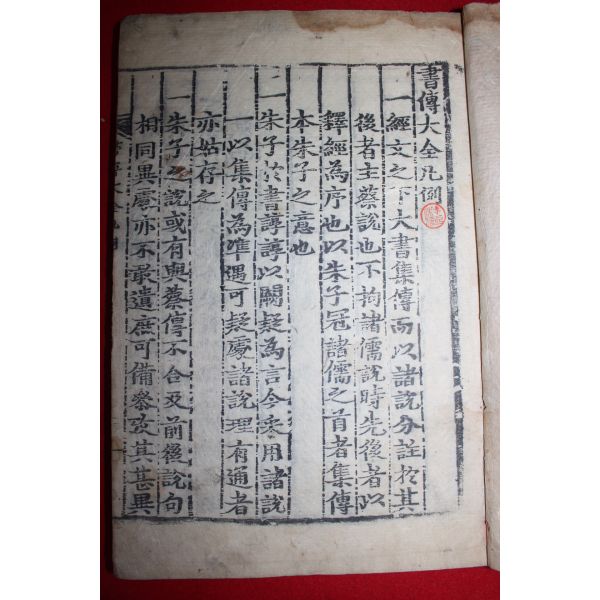 書傳大全凡例
一經文之下大書集傳而以諸說分註於其
後者主蔡說也不拘諸儒說時先後者以
釋經為序也以朱子冠諸儒之首者集傳
本朱子之意也
一朱子於書諄諄以闕疑為言今采用諸說
一以集傳為準遇可疑處諸說理有通者
亦姑存之
一朱子之說或有與蔡傳不合及前後說句
相同異處亦不敢遺庶可備參攷其甚異